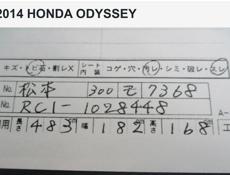 2014 HONDA ODYSSEY
キズ・ヒビ・割レX シート内装 コゲ・穴・汚レ・シミ・破レ・スレ
No. 松本 300 モ 7368
No. RC1-1028448
用 長さ 483 幅 182 高さ 168